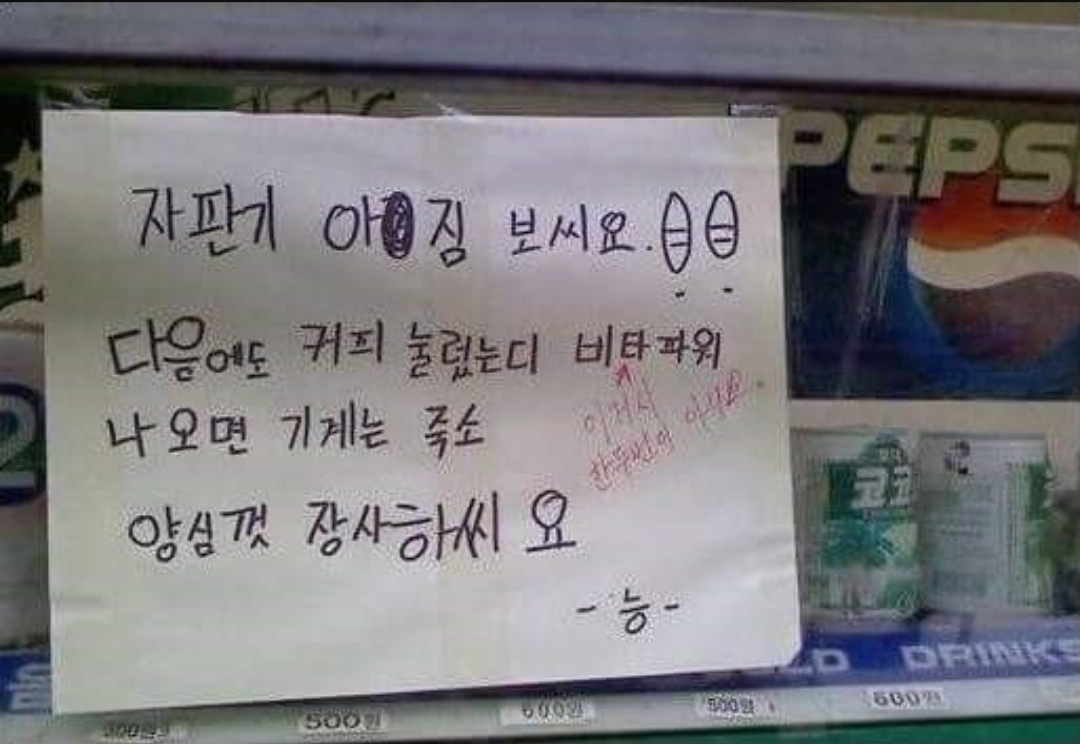 PEPSI
자판기 아짐 보씨요.!!
다음에도 커피 눌렀는디 비타파워
이거시
한두번이 아녀요.
나오면 기계는 죽소
양심껏 장사하씨요
-능-
코코
COLD DRINKS
300원
500원
600원
500원
600원